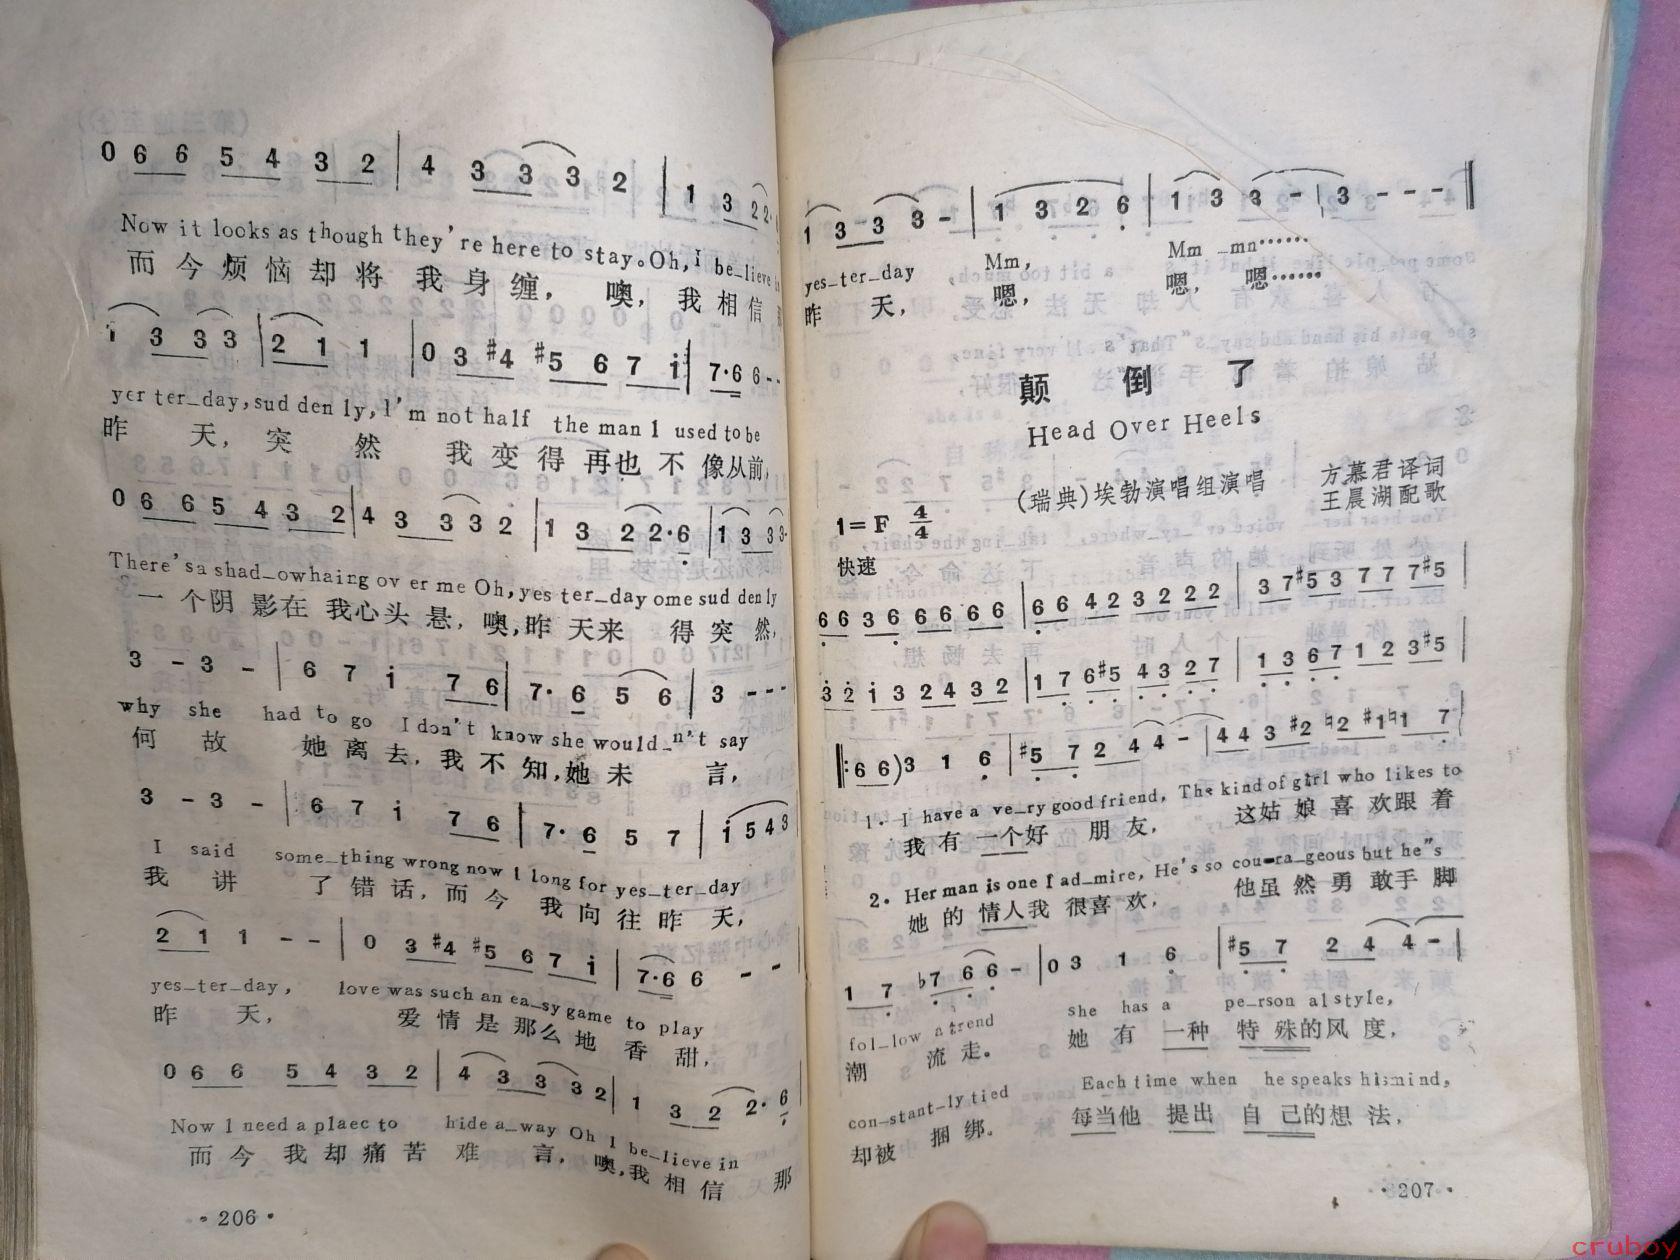 0 6 6 5 4 3 2 | 4 3 3 3 2 | 1 3 2 2·
Now it looks as though they're here to stay。Oh, I be_lieve
而今烦恼却将我身缠，噢，我相信
i 3 3 3 | 2 1 1 | 0 3 #4 #5 6 7 i | 7·6 6 - -
yer ter_day, sud den ly, I'm not half the man I used to be
昨天，突然我变得再也不像从前，
0 6 6 5 4 3 2 | 4 3 3 3 2 | 1 3 2 2·6 | 1 3 3 3·
There's a shad_owhaing ov er me Oh, yes ter_day ome sud den ly
一个阴影在我心头悬，噢，昨天来得突然，
3 - 3 - | 6 7 i 7 6 | 7· 6 5 6 | 3 - - -
why she had to go I don't know she would_n't say
何故她离去，我不知，她未言，
3 - 3 - | 6 7 i 7 6 | 7· 6 5 7 | i 5 4 3
I said some_thing wrong now I long for yes_ter_day
我讲了错话，而今我向往昨天，
2 1 1 - - | 0 3 #4 #5 6 7 i | 7·6 6 - -
yes_ter_day, love was such an ea_sy game to play
昨天，爱情是那么地香甜，
0 6 6 5 4 3 2 | 4 3 3 3 2 | 1 3 2 2· 6
Now I need a plaec to hide a_way Oh I be_lieve in
而今我却痛苦难言，噢，我相信那
·206·
1 3 3 3 - | 1 3 2 6 | 1 3 3 - | 3 - - -
yes_ter_day Mm, Mm _mn……
昨天，嗯，嗯，嗯……
颠倒了
Head Over Heels
(瑞典)埃勃演唱组演唱 方慕君译词
王晨湖配歌
1=F 4/4
快速
6 6 3 6 6 6 6 6 | 6 6 4 2 3 2 2 2 | 3 7 #5 3 7 7 7 #5 |
3 2 i 3 2 4 3 2 | 1 7 6 #5 4 3 2 7 | 1 3 6 7 1 2 3 #5 |
‖: 6 6) 3 1 6 | #5 7 2 4 4 - | 4 4 3 #2 ♮2 #1 ♮1 7 |
1. I have a ve_ry good friend, The kind of girl who likes to
我有一个好朋友，这姑娘喜欢跟着
2. Her man is one I ad_mire, He's so cou_ra_geous but he"s
她的情人我很喜欢，他虽然勇敢手脚
1 7 ♭7 6 6 - | 0 3 1 6 | #5 7 2 4 4 - |
fol_low a trend she has a pe_rson al style,
潮流走。她有一种特殊的风度，
con_stant_ly tied Each time when he speaks his mind,
却被捆绑。每当他提出自己的想法，
·207·
cruboy